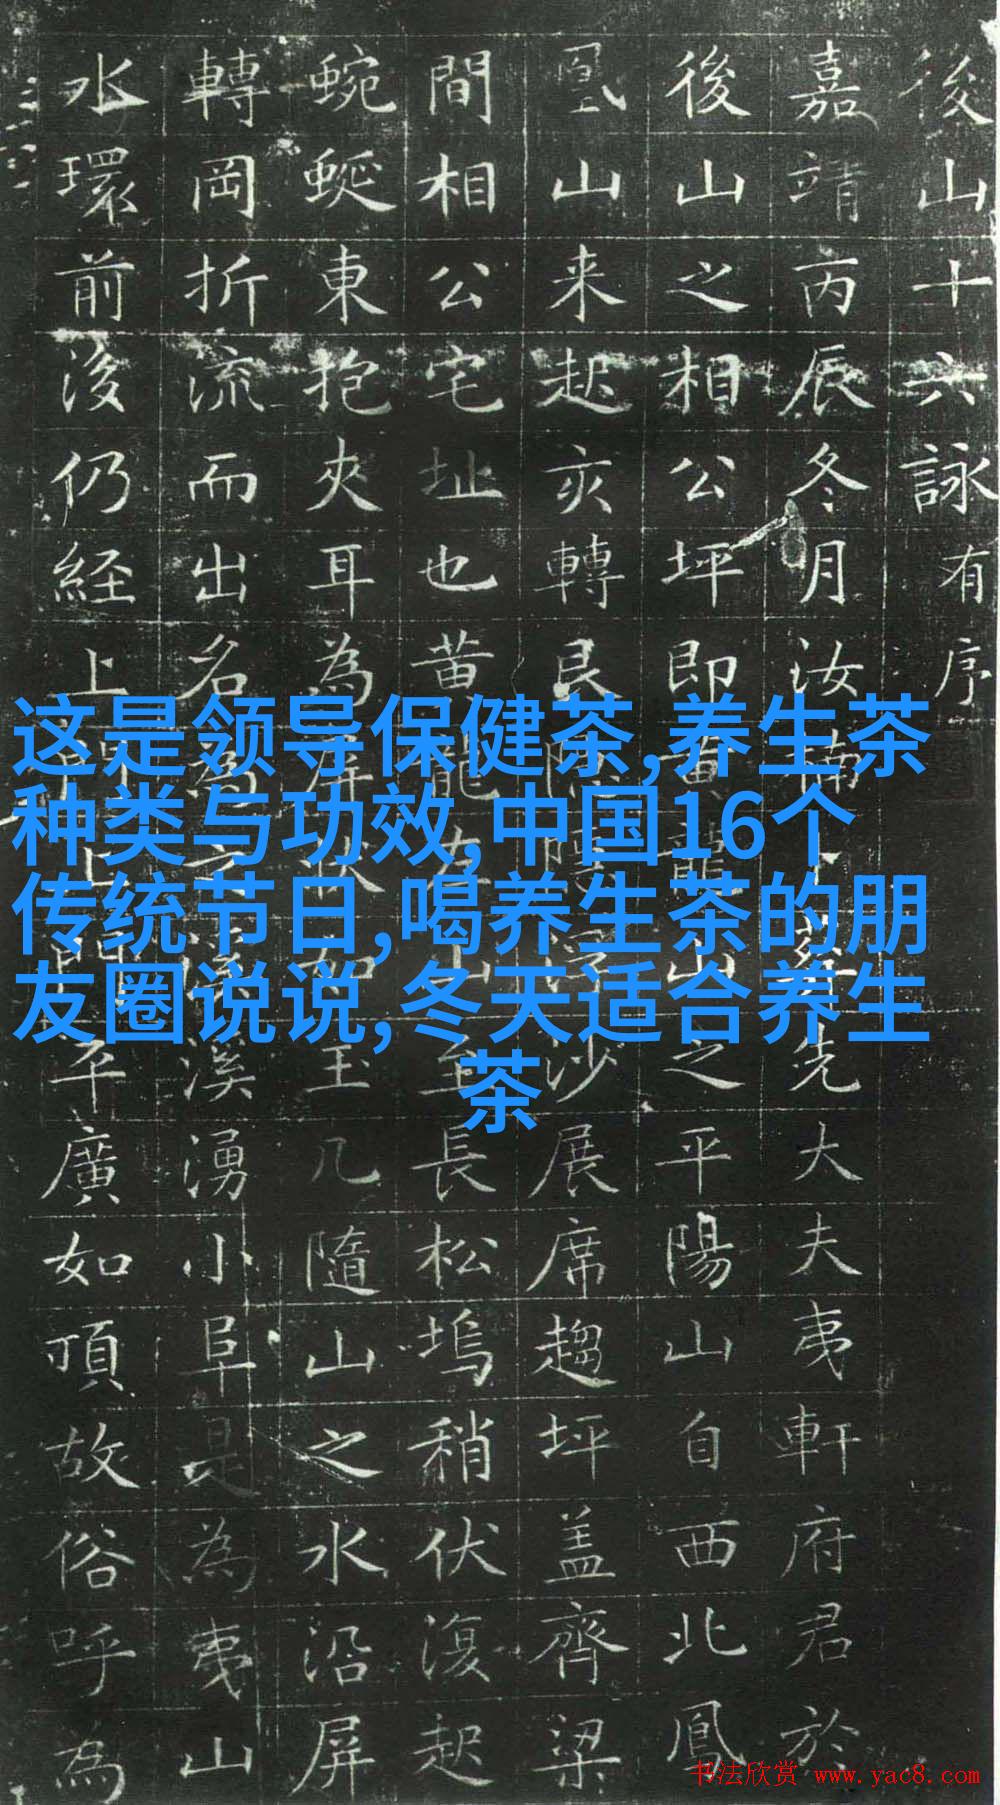 後山十六詠有序
嘉靖丙辰冬月汝楠卜先大夫夷軒府君於
後山之相公坪即黄龍山之平陽山自西北鳳
凰山来起亥轉艮隐沙展席趨坪盖齊梁
間相公宅址也黄龍山至長松塢稍伏復起
蜿蜒東抱夾耳為屏狀如玉几隨山之水沿屏
轉岡折流而出名溪湧小阜是為夷山
水環前後仍経上上平廣如頂故俗呼為
这是领导保健茶,养生茶
种类与功效,中国16个
传统节日,喝养生茶的朋
友圈说说,冬天适合养生
茶
书法欣赏 www.yac8.com